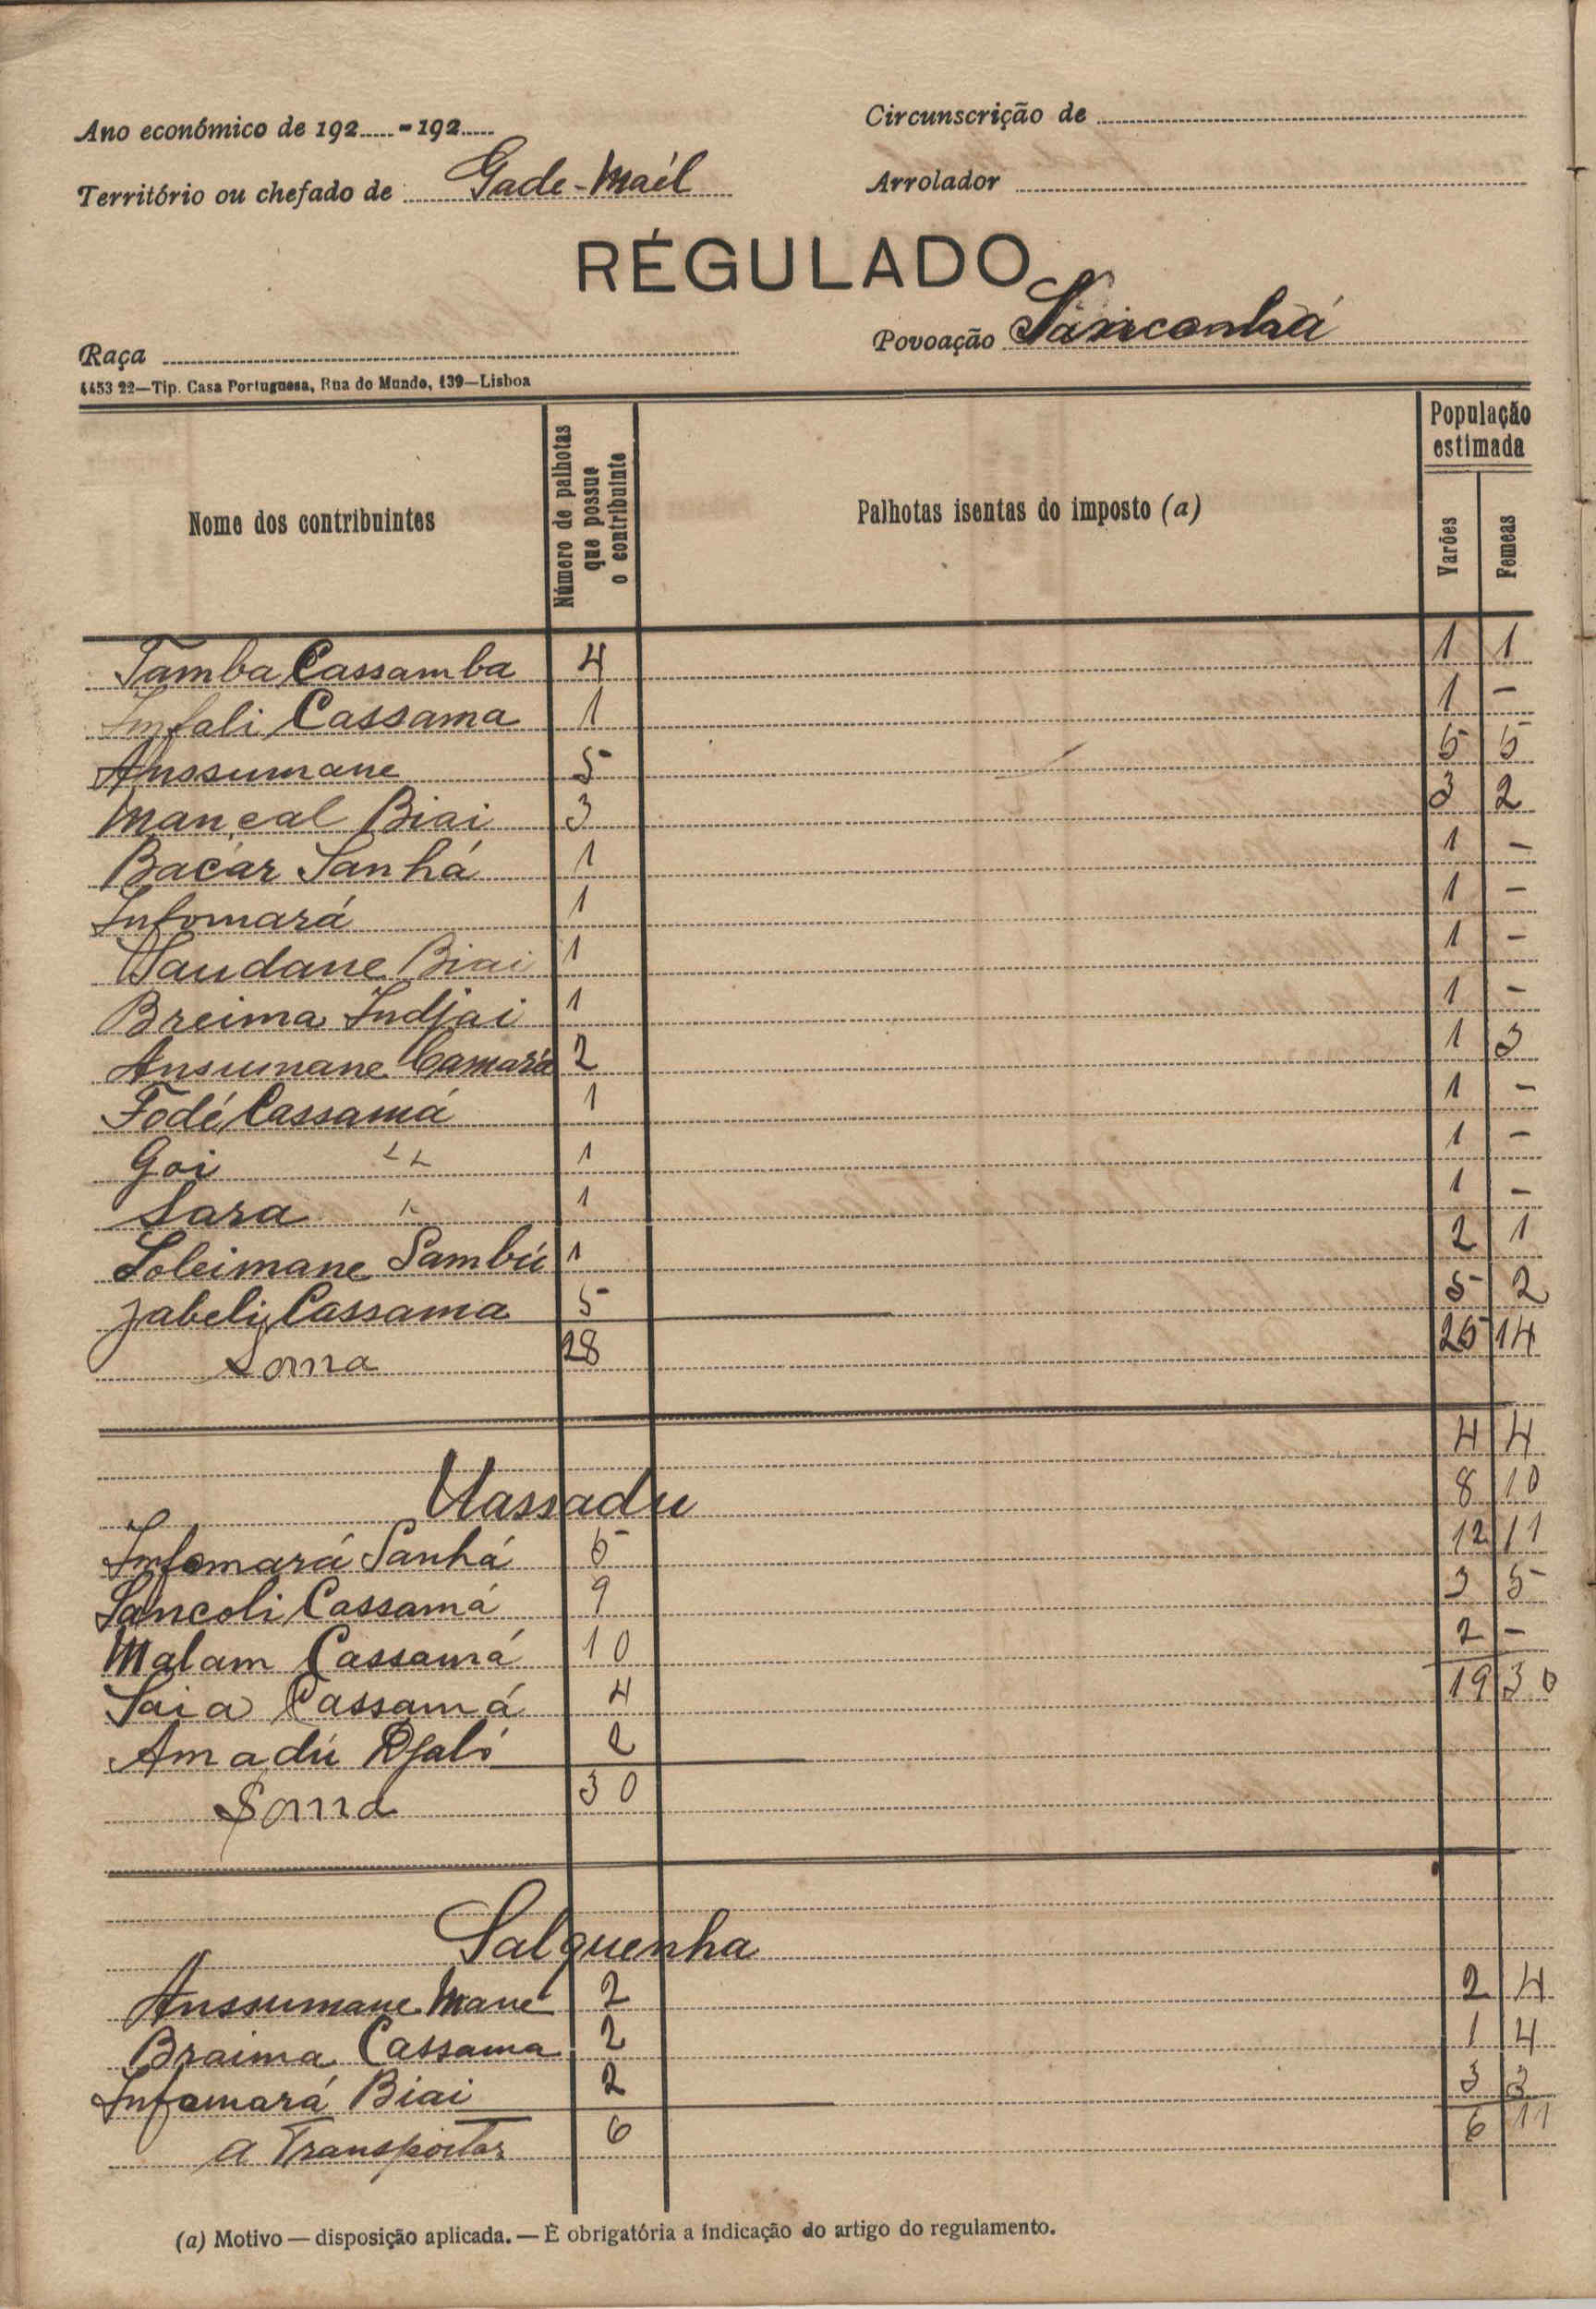 Ano económico de 192.....-192.....
Circunscrição de
Território ou chefado de Gade-Maél
Arrolador
RÉGULADO
Raça
Povoação Sanconhá
4453 22—Tip. Casa Portuguesa, Rua do Mundo, 139—Lisboa
Nome dos contribuintes
Número de palhotas que possue o contribuinte
Palhotas isentas do imposto (a)
População estimada
Varões
Femeas
Tamba Cassamba 4 1 1
Infali Cassama 1 1 -
Anssumane 5 5 5
Mançal Biai 3 3 2
Bacár Sanhá 1 1 -
Infomará 1 1 -
Saudane Biai 1 1 -
Breima Indjai 1 1 -
Ansumane Camará 2 1 3
Fodé Cassamá 1 1 -
Goi " 1 1 -
Sara " 1 1 -
Soleimane Sambú 1 2 1
Jabeli Cassama 5 5 2
Soma 28 25 14
4 4
Uassadu 8 10
Infomará Sanhá 5 12 11
Sancoli Cassamá 9 3 5
Malam Cassamá 10 2 -
Saia Cassamá 4 19 30
Amadú Djaló 2
Soma 30
Salquenha
Anssumane Mané 2 2 4
Braima Cassama 2 1 4
Infamará Biai 2 3 3
a Transportar 6 6 11
(a) Motivo — disposição aplicada. — É obrigatória a indicação do artigo do regulamento.